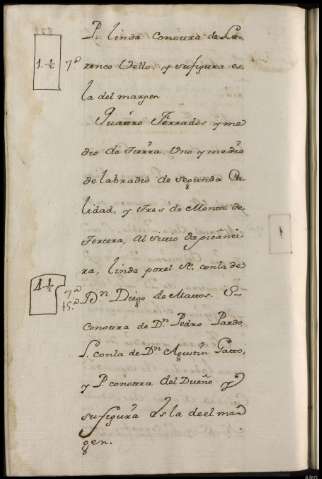 P. linda con otra de Lo-
renzo Vello, y su figura es
la del margen
1 ½ 7ª
Quatro Ferrados y me
dio de Tierra, Uno y medio
de labradio de segunda Ca
lidad, y Tres de Monte de
Tercera, Al sitio da
ra, linda por el N. con la de
4 ½
Dn Diego de Mattos. S.
con otra de Dn Pedro Pardo,
L. con la de Dn Agustin Gatto,
y P. con otra del Dueño y
su figura es la de el mar
gen.